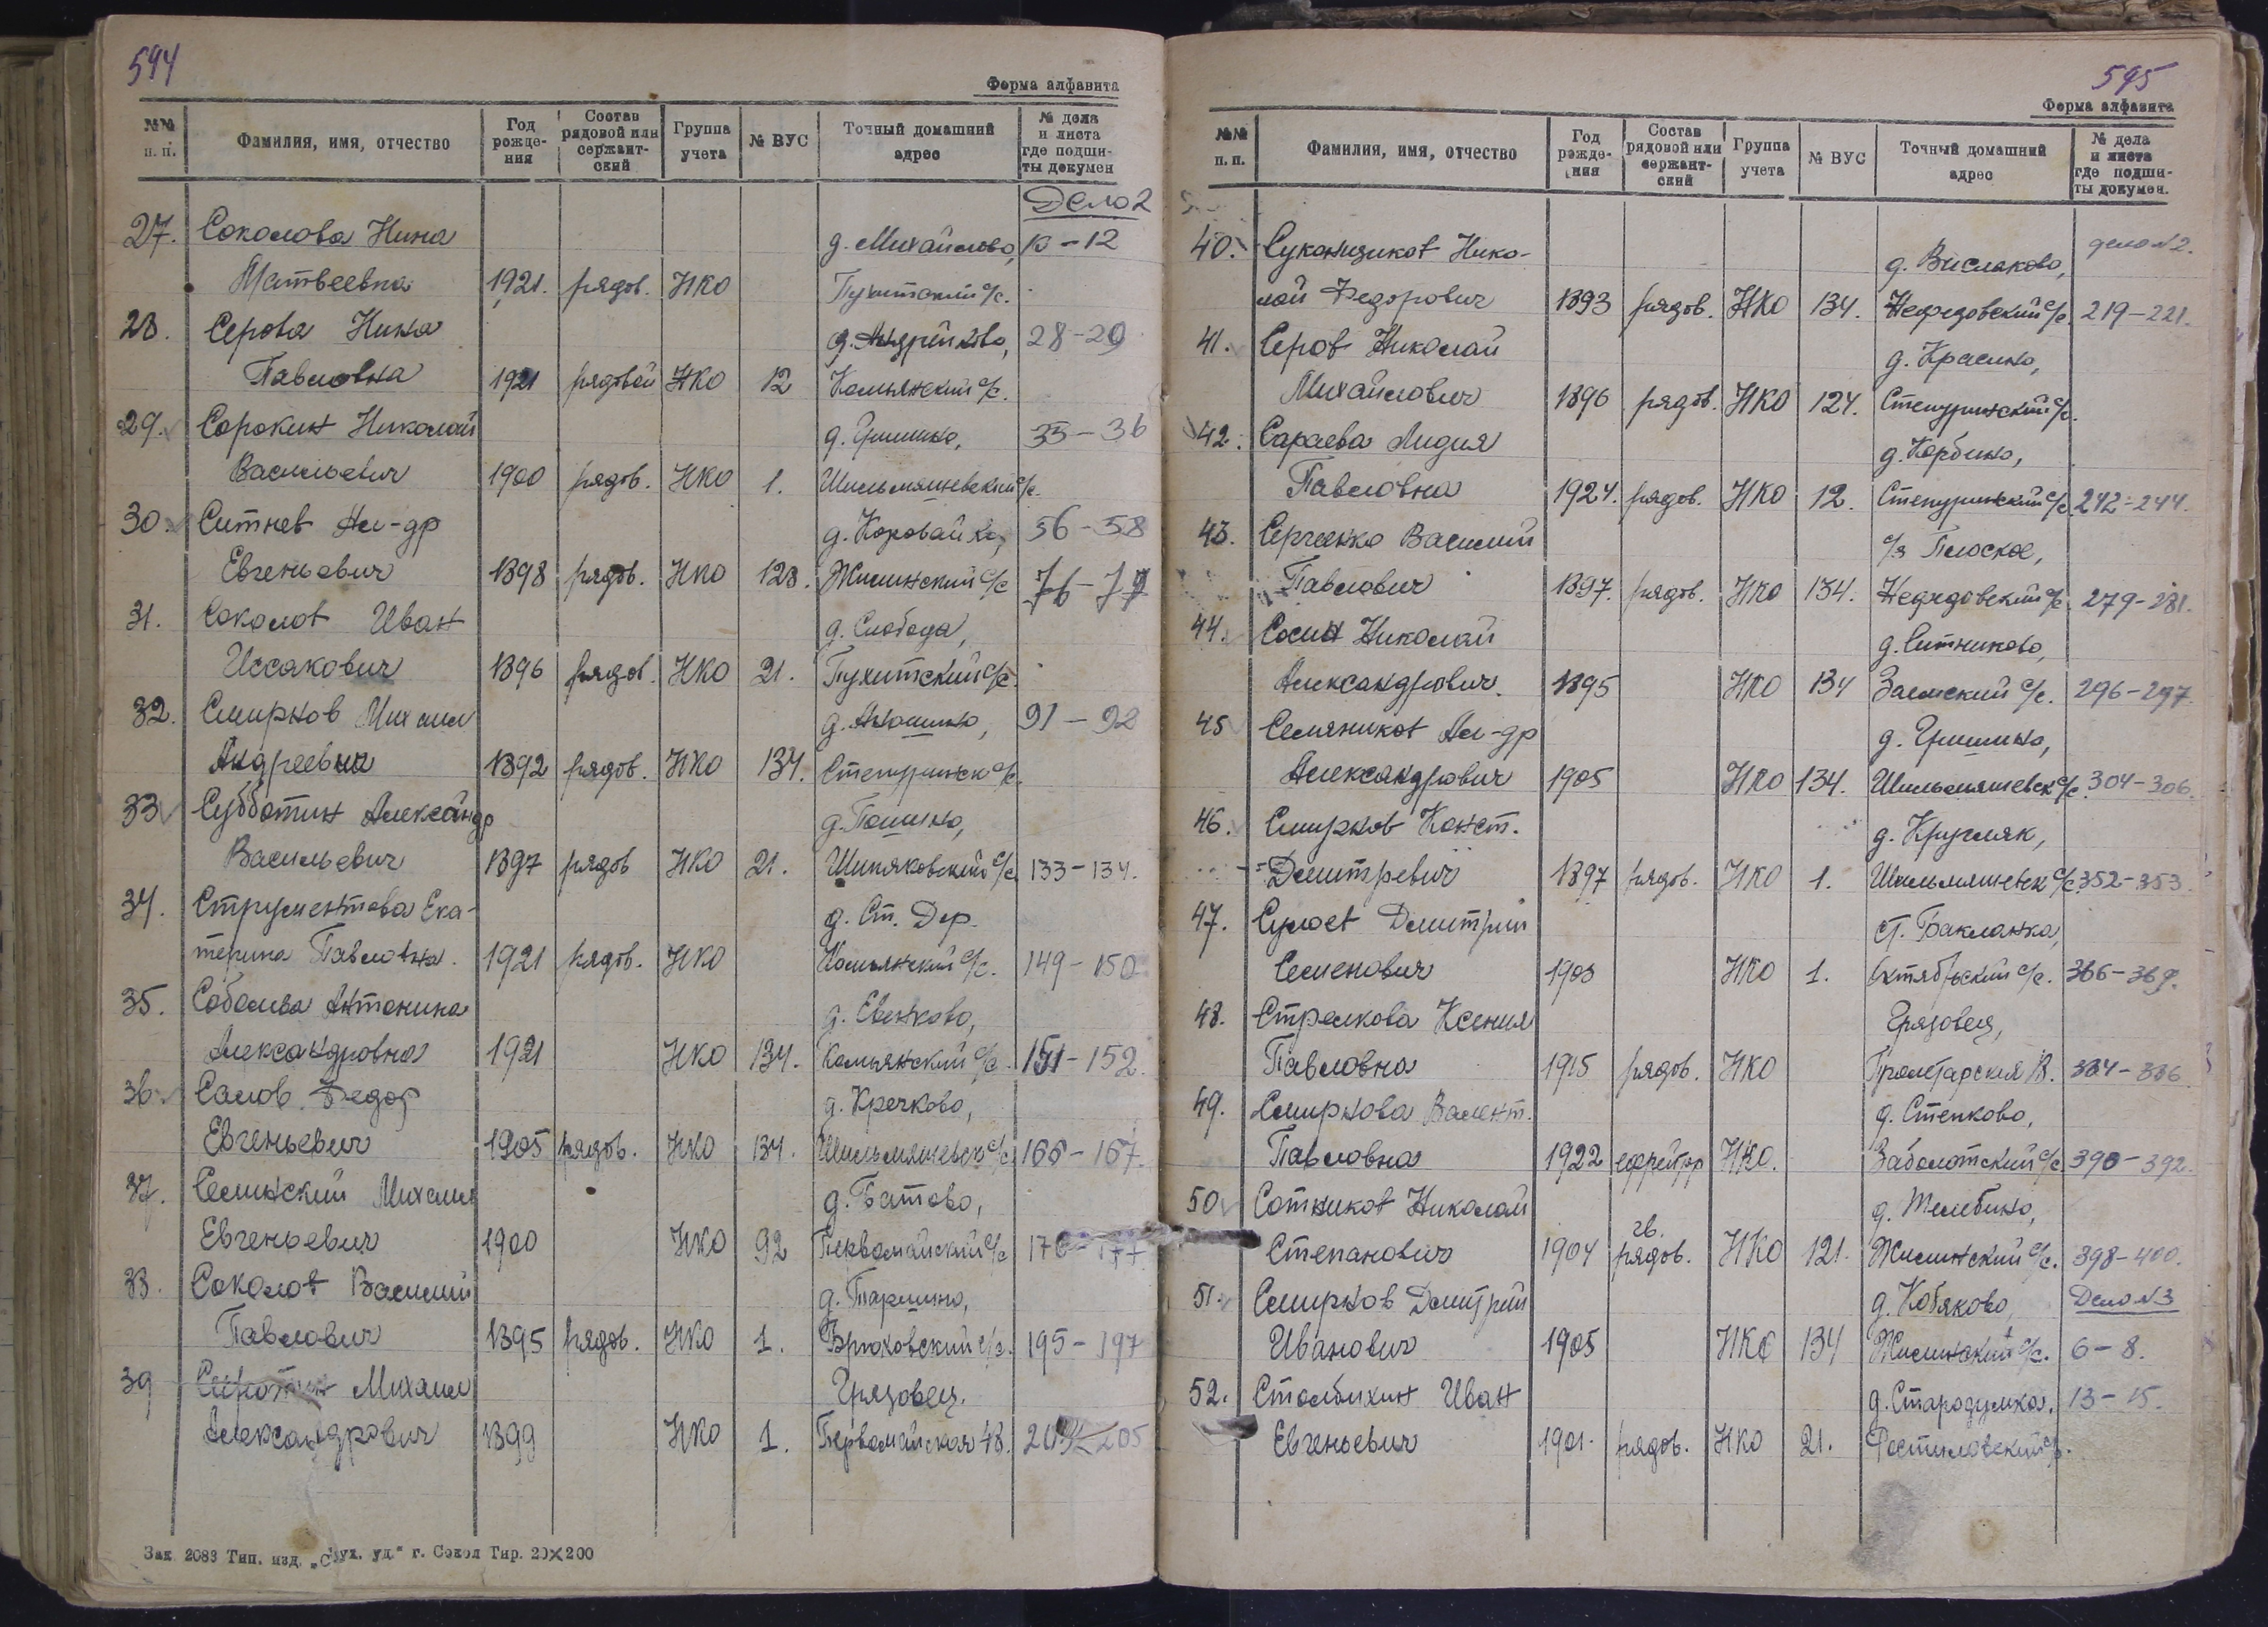 594
Форма алфавита
№№ п. п. Фамилия, имя, отчество Год рожде- ния Состав рядовой или сержант- ский Группа учета № ВУС Точный домашний адрес № дела и листа где подши- ты докумен
Дело 2
27. Соколова Нина д. Михайлово, 10-12
Матвеевна 1921. рядов. НКО Пухитский с/с.
28. Серова Нина д. Андрейково, 28-29
Павловна 1921 рядовой НКО 12 Камьянский с/с.
29. Сорокин Николай д. Гришино, 35-36
Васильевич 1900 рядов. НКО 1. Шильмяшевский с/с.
30. Ситнев Ал-др д. Коровайка, 56-58
Евгеньевич 1898 рядов. НКО 128. Жилинский с/с 76-79
31. Соколов Иван д. Слобода,
Иссакович 1896 рядов. НКО 21. Пухитский с/с.
32. Смирнов Михаил д. Анюшино, 91-92
Андреевич 1892 рядов. НКО 134. Степуринск с/с.
33 Субботин Александр д. Пошино,
Васильевич 1897 рядов НКО 21. Шипяковский с/с 133-134.
34. Струментова Ека- д. Ст. Дер.
терина Павловна. 1921 рядов. НКО Комьянский с/с. 149-150
35. Соболева Антонина д. Евенково,
Александровна 1921 НКО 134. Комьянский с/с. 151-152.
36. Салов Федор д. Кречково,
Евгеньевич 1905 рядов. НКО 134. Шильмяшевск с/с 166-167.
37. Селинский Михаил д. Батово,
Евгеньевич 1900 НКО 92 Первомайский с/с 176-177
38. Соколов Василий д. Паршино,
Павлович 1895 рядов. НКО 1. Брюховский с/с. 195-197
39 Михаил Грязовец.
Александрович 1899 НКО 1. Первомайская 48. 205
Зак 2083 Тип. изд. уд." г. Сокол Тир. 20×200
595
Форма алфавита
№№ п. п. Фамилия, имя, отчество Год рожде- ния Состав рядовой или сержант- ский Группа учета № ВУС Точный домашний адрес № дела и листа где подши- ты докумен.
40. Суконщиков Нико- д. Вислаково, дело №2.
лай Федорович 1893 рядов. НКО 134. Нефедовский с/с. 219-221.
41. Серов Николай д. Красино,
Михайлович 1896 рядов. НКО 124. Степуринский с/с.
42. Сараева Лидия д. Корбино,
Павловна 1924. рядов. НКО 12. Степуринский с/с 242-244.
43. Сергеенко Василий с/з Плоское,
Павлович 1897. рядов. НКО 134. Недедовский с/с 279-281.
44. Сосин Николай д. Ситниково,
Александрович. 1895 НКО 134 Заемский с/с. 296-297.
45 Семяников Ал-др д. Гришино,
Александрович 1905 НКО 134. Шильмяшевск с/с. 304-306.
46. Смирнов Конст. д. Кругляк,
Дмитревич 1897 рядов. НКО 1. Шильмяшевск с/с. 352-353.
47. Сулоев Дмитрий ст. Бакланка,
Семенович 1903 НКО 1. Октябрьский с/с. 366-369.
48. Стрелкова Ксения Грязовец,
Павловна 1915 рядов. НКО Пролетарская 384-386
49. Смирнова Валент. д. Степково,
Павловна 1922 ефрейтор НКО. Заболотский с/с 390-392.
50 Сотников Николай д. Телебино,
Степанович 1904 гв. рядов. НКО 121. Жилинский с/с. 398-400.
51. Смирнов Дмитрий д. Кобяково, Дело №3
Иванович 1905 НКО 134 Жилинский с/с. 6-8.
52. Столбихин Иван д. Стародумка. 13-15.
Евгеньевич 1901. рядов. НКО 21. Ростиловский с/с.